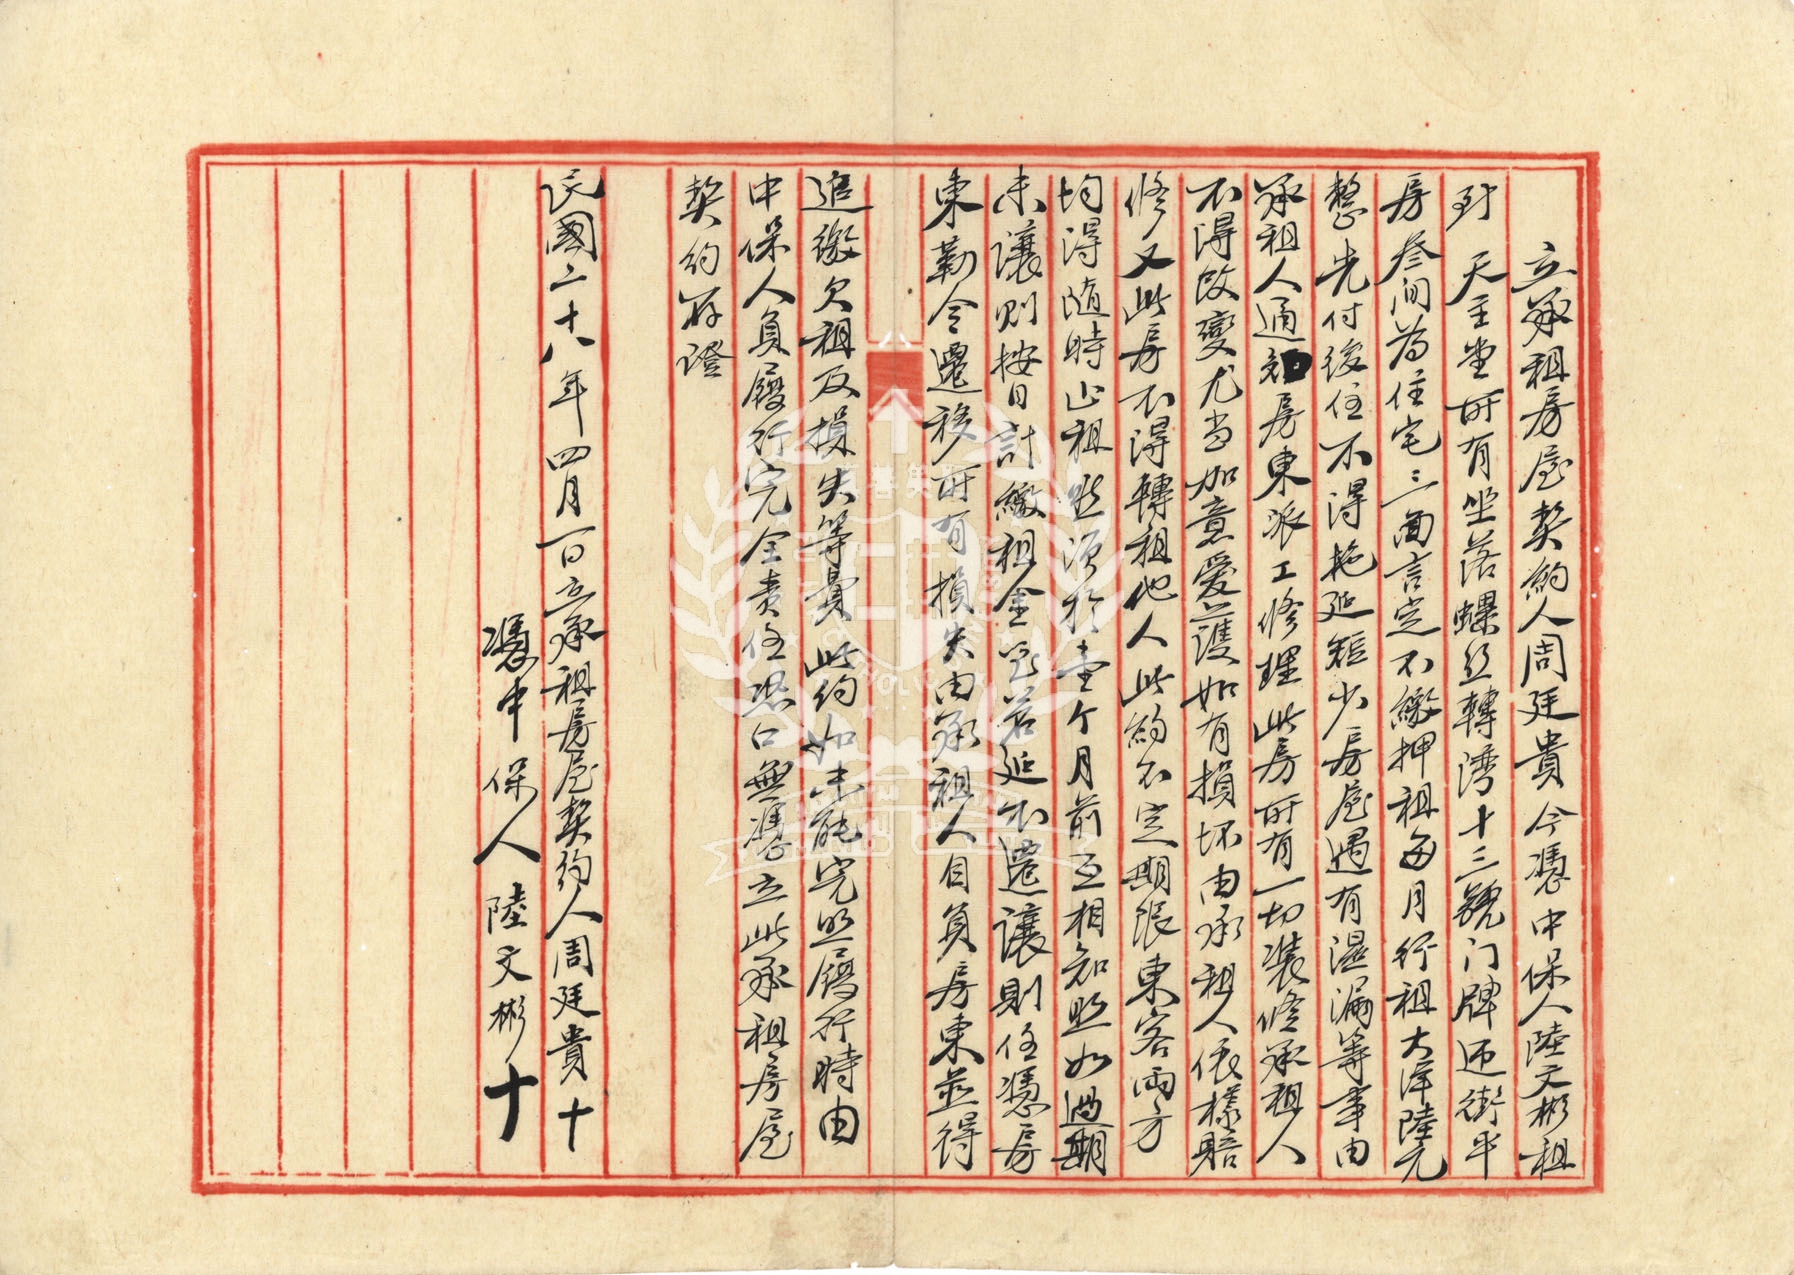 立承租房屋契約人周廷貴今憑中保人陸文彬租
到 天主堂所有坐落螺絲轉灣十三號门牌迎街平
房叁间為住宅三面言定不繳押租每月行租大洋陸元
整先付後住不得拖延短少房屋遇有濕漏等事由
承租人通知房東派工修理此房所有一切裝修承租人
不得改變尤当加意愛護如有損坏由承租人依樣賠
修又此房不得轉租他人此約不定期限東客両方
均得随時止租惟須於壹个月前互相知照如過期
未讓则按日計繳租金岂若延不遷讓則任憑房
東勒令遷移所有損失由承租人自負房東並得
追繳欠租及損失等費此约如未能完照履行時由
中保人負履行完全责任恐口無憑立此承租房屋
契约存證
民國二十八年四月一日立承租房屋契约人周廷貴十
憑中保人陸文彬十